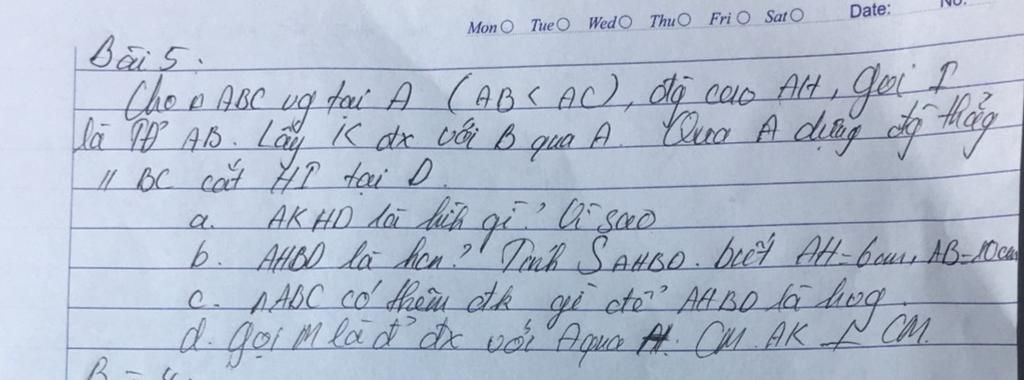 Mon Tue Wed Thu Fri Sat Date: No:
Bài 5.
Cho Δ ABC vg tại A (AB < AC), đg cao AH, gọi I
là TĐ AB. Lấy K đx với B qua A. Qua A dựng đg thẳng
// BC cắt HI tại D.
a. AKHD là hình gì? Vì sao
b. AHBD là hcn? Tính S AHBD. biết AH=6cm, AB=10cm
c. ΔABC có thêm đk gì để AHBD là hvg.
d. gọi M là đ' đx với A qua H. CM. AK ⊥ CM.